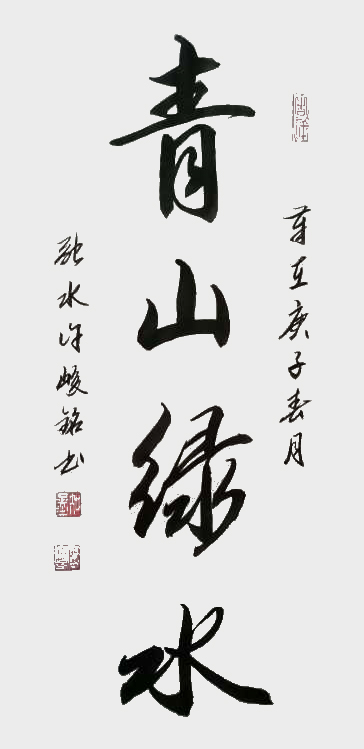 岁在庚子春月
青山绿水
融水许峻铭书